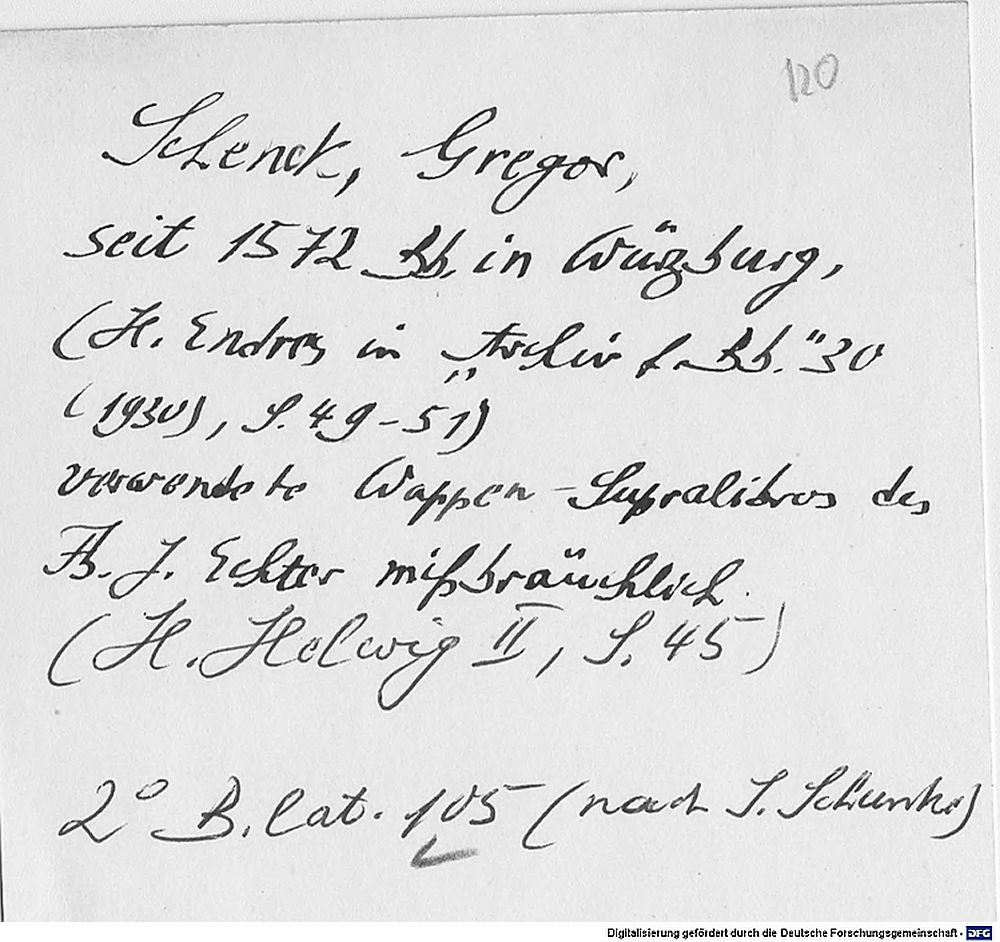 120
Schenck, Gregor,
seit 1572 Bb. in Würzburg,
(H. Endres in „Archiv f. Bb." 30
(1930), S. 49-51)
verwendete Wappen-Supralibros des
FB. J. Echter mißbräuchlich.
(H. Helwig II, S. 45)
2° B. lat. 105 (nach I. Schunke)
Digitalisierung gefördert durch die Deutsche Forschungsgemeinschaft - DFG